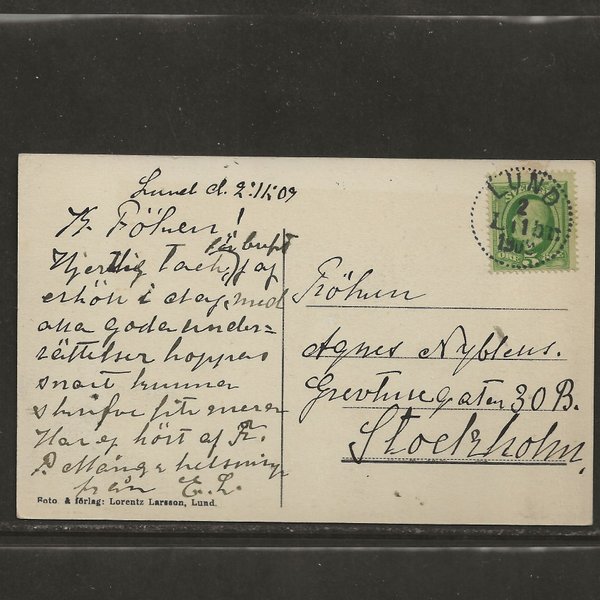 Lund d. 2:11:09
K. Fröken!
Hjertlig Tack för brefet jag
erhöll i dag, med
alla goda under-
rättelser hoppas
snart kunna
skrifva lite mera
Har ej hört af Fr.
P. Många helsningar
från E. L.
Foto & förlag: Lorentz Larsson, Lund.
LUND
2
11
1909
SVERIGE
ÖRE
Fröken
Agnes Nyblens.
Grevturegatan 30 B.
Stockholm.